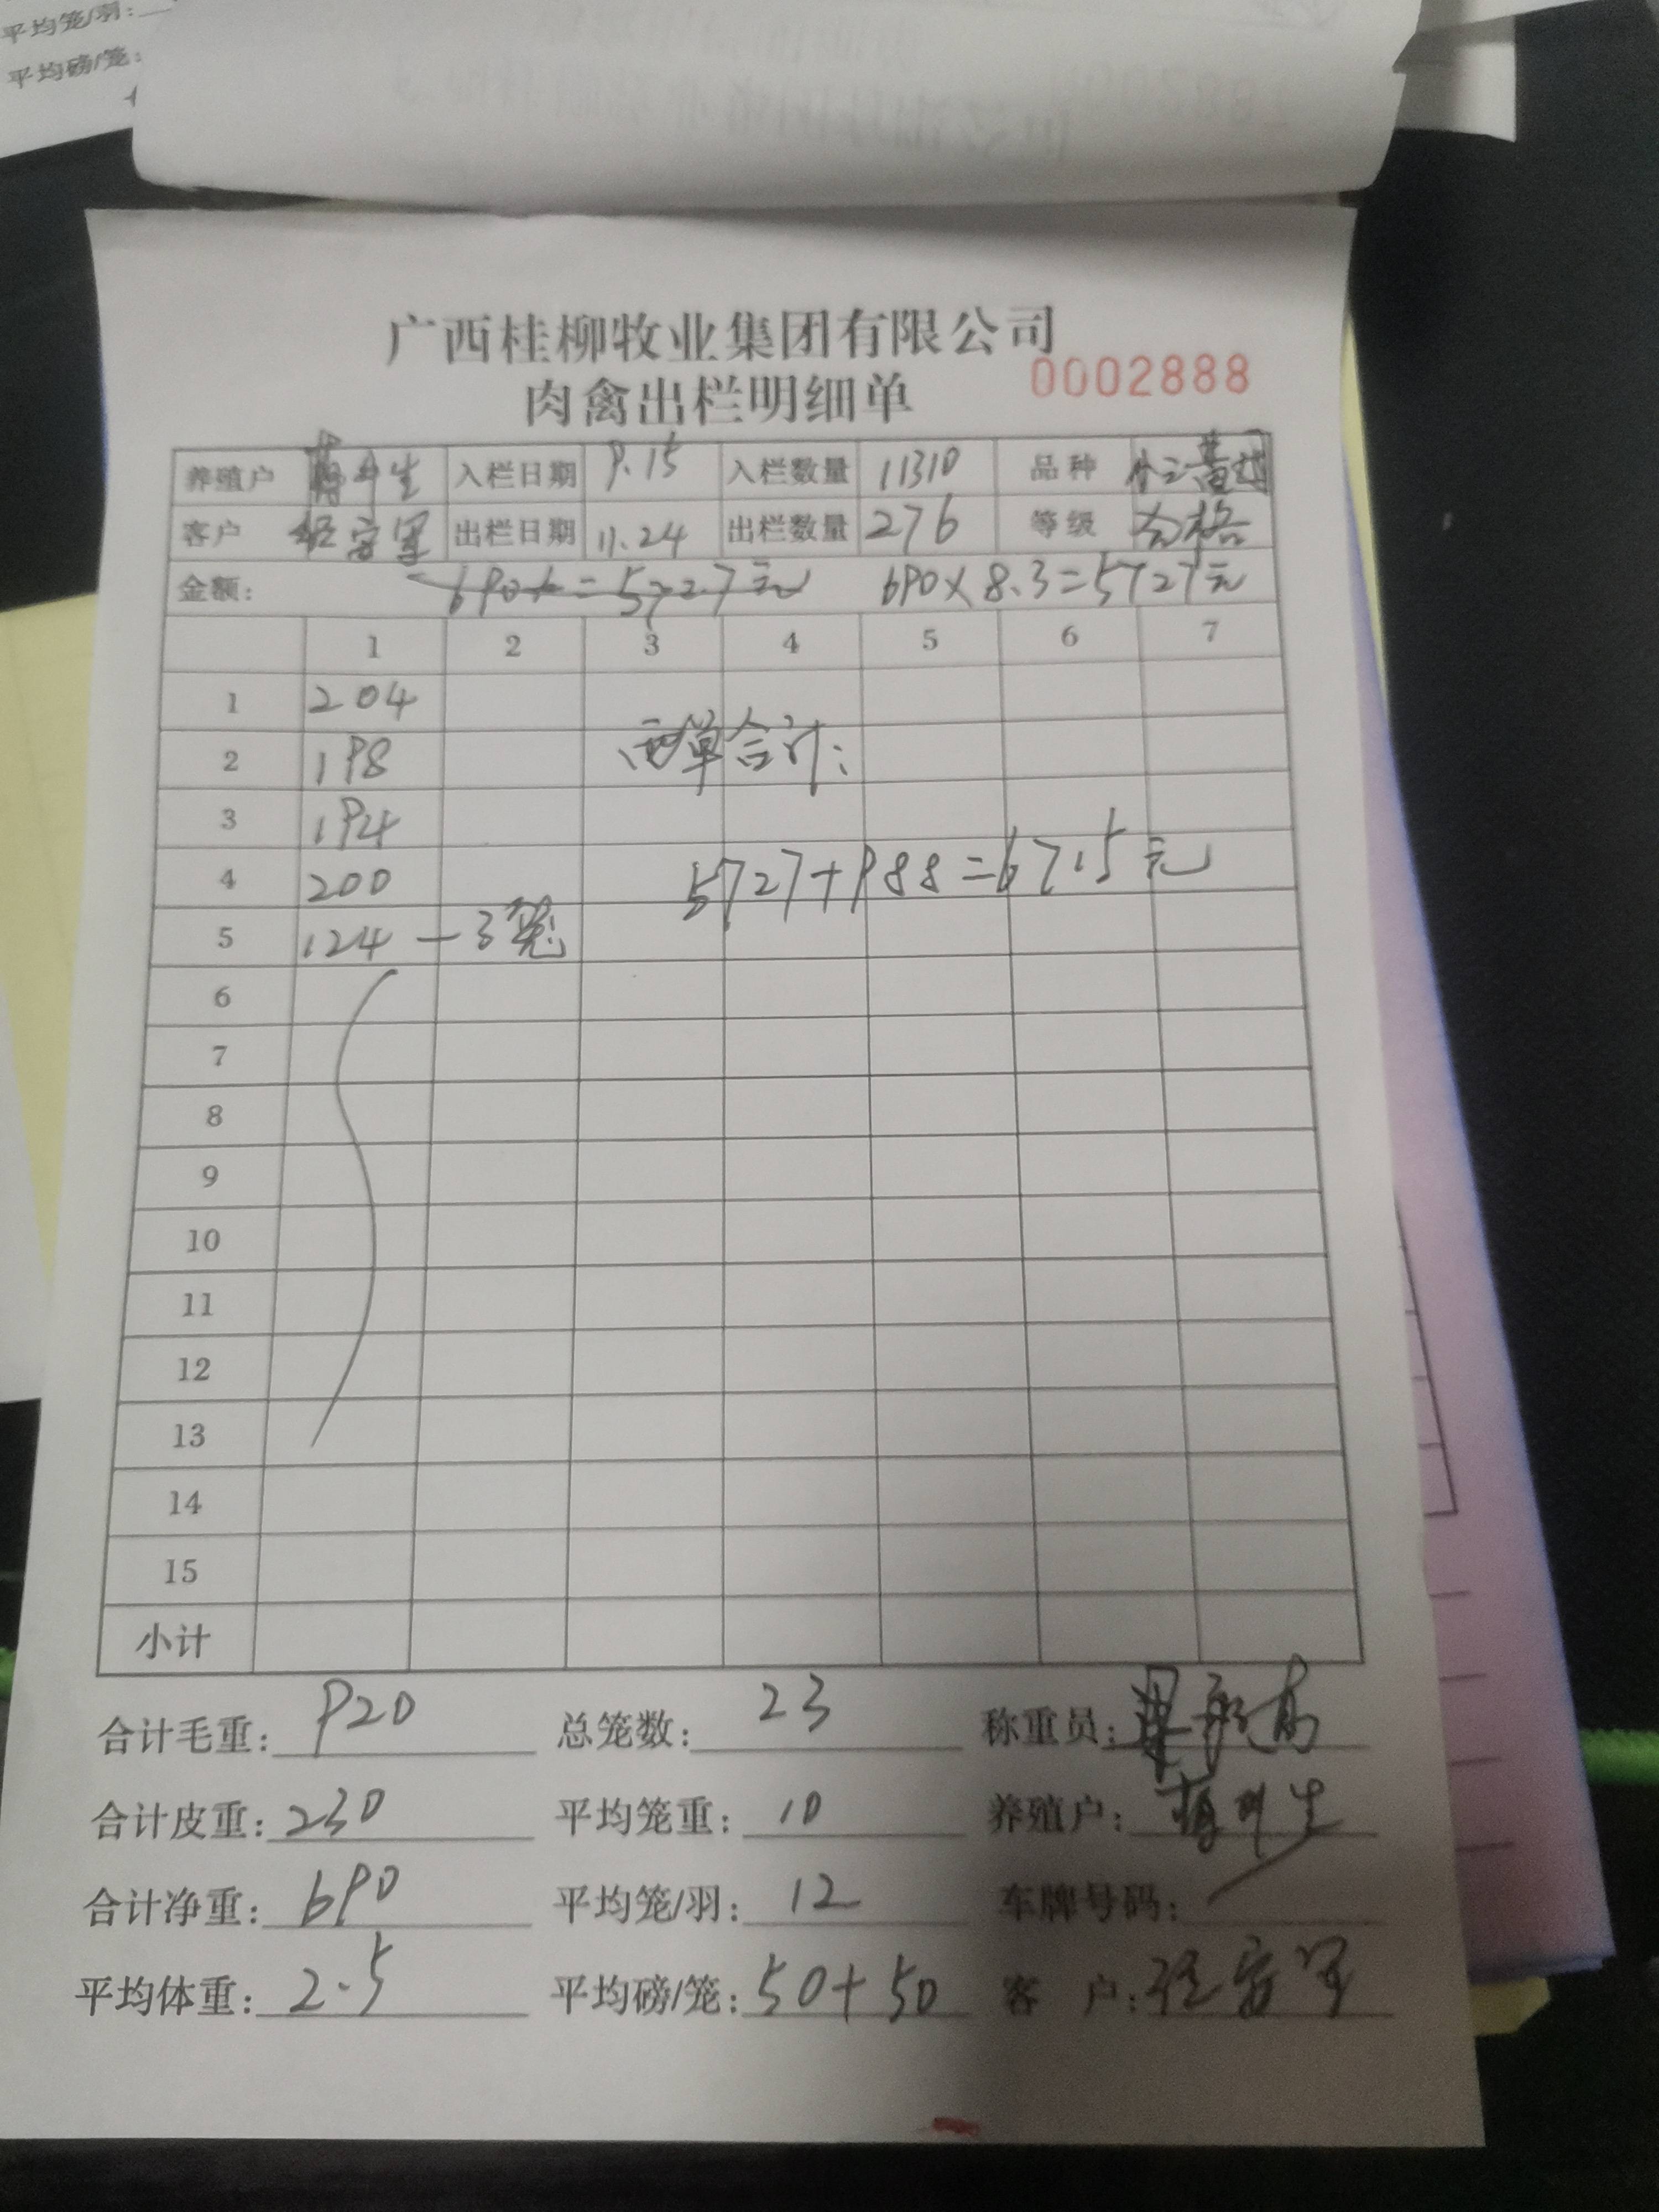 平均笼/羽:
平均磅/笼:
广西桂柳牧业集团有限公司
肉禽出栏明细单 0002888
养殖户 生 入栏日期 9.15 入栏数量 11310 品种
客户 出栏日期 11.24 出栏数量 276 等级 合格
金额: 690×8.3=5727元
1 2 3 4 5 6 7
1 204
2 198
3 194
4 200
5 124 — 3笼
两单合计:
5727+988=6715元
6
7
8
9
10
11
12
13
14
15
小计
合计毛重: 920 总笼数: 23 称重员:
合计皮重: 230 平均笼重: 10 养殖户: 生
合计净重: 690 平均笼/羽: 12 车牌号码:
平均体重: 2.5 平均磅/笼: 50+50 客户: